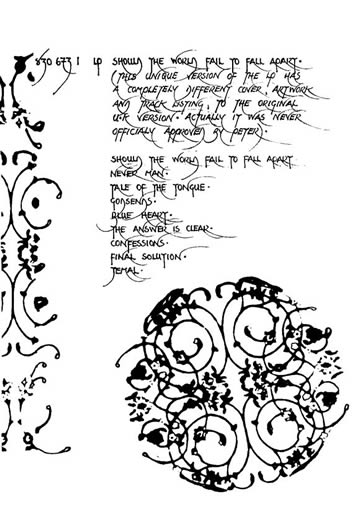 830 673 1 LP SHOULD THE WORLD FAIL TO FALL APART.
(THIS UNIQUE VERSION OF THE LP HAS
A COMPLETELY DIFFERENT COVER, ARTWORK
AND TRACK LISTING, TO THE ORIGINAL
U.K VERSION. ACTUALLY IT WAS NEVER
OFFICIALLY APPROVED BY PETER).
SHOULD THE WORLD FAIL TO FALL APART.
NEVER MAN.
TALE OF THE TONGUE.
CANVAS BLUE HEART.
THE ANSWER IS CLEAR.
CONFESSIONS.
FINAL SOLUTION.
JEMAL.